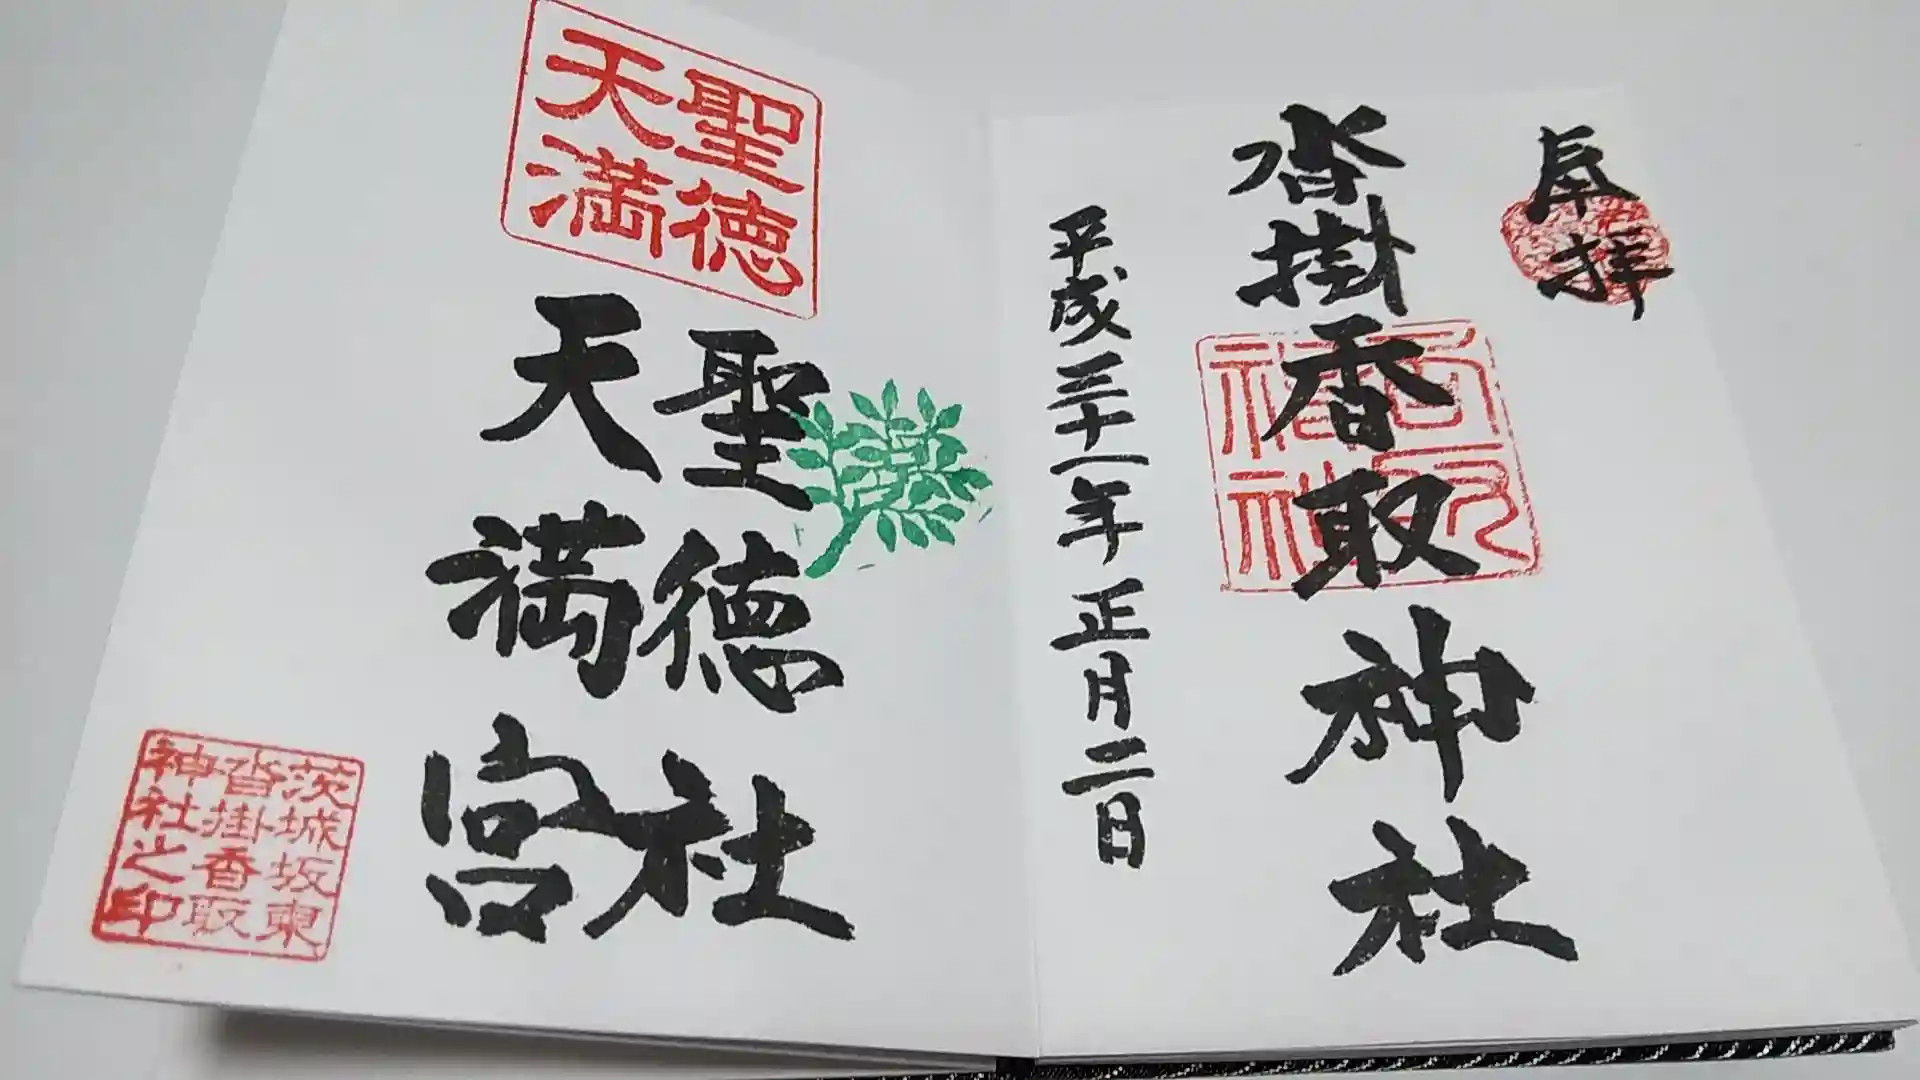 奉拝
沓掛香取神社
平成三十一年正月二日
聖徳社
天満宮
聖徳
天満
茨城坂東
沓掛香取
神社之印